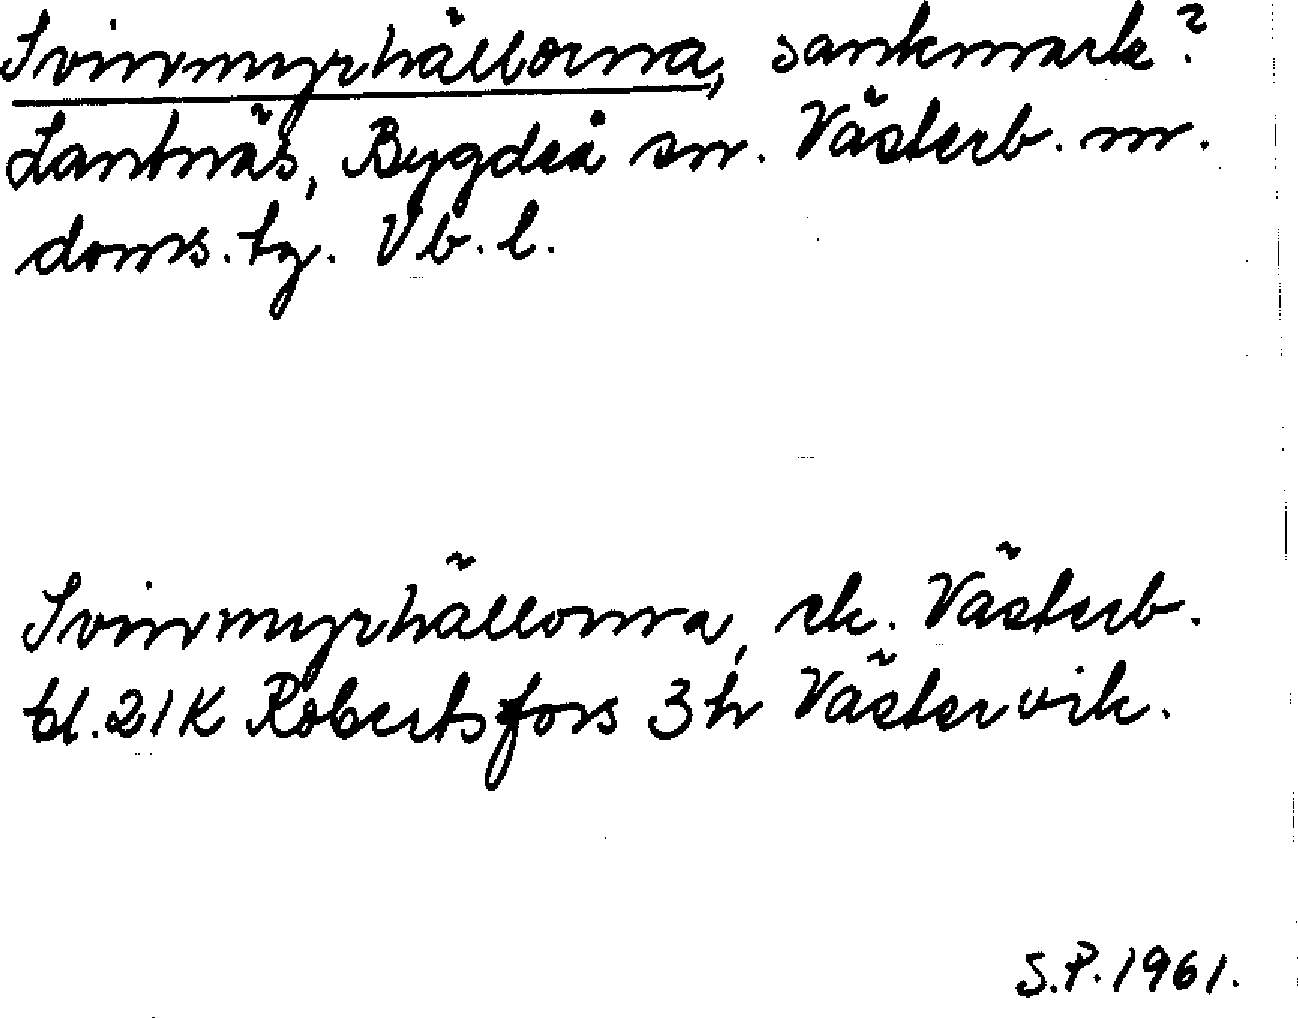 Svinmyrhällorna, sankmark?
Lantnäs, Bygdeå sn. Västerb. n.
doms. tg. Vb. l.
Svinmyrhällorna, ek. Västerb.
bl. 21K Robertsfors 3h Västervik.
S.P. 1961.